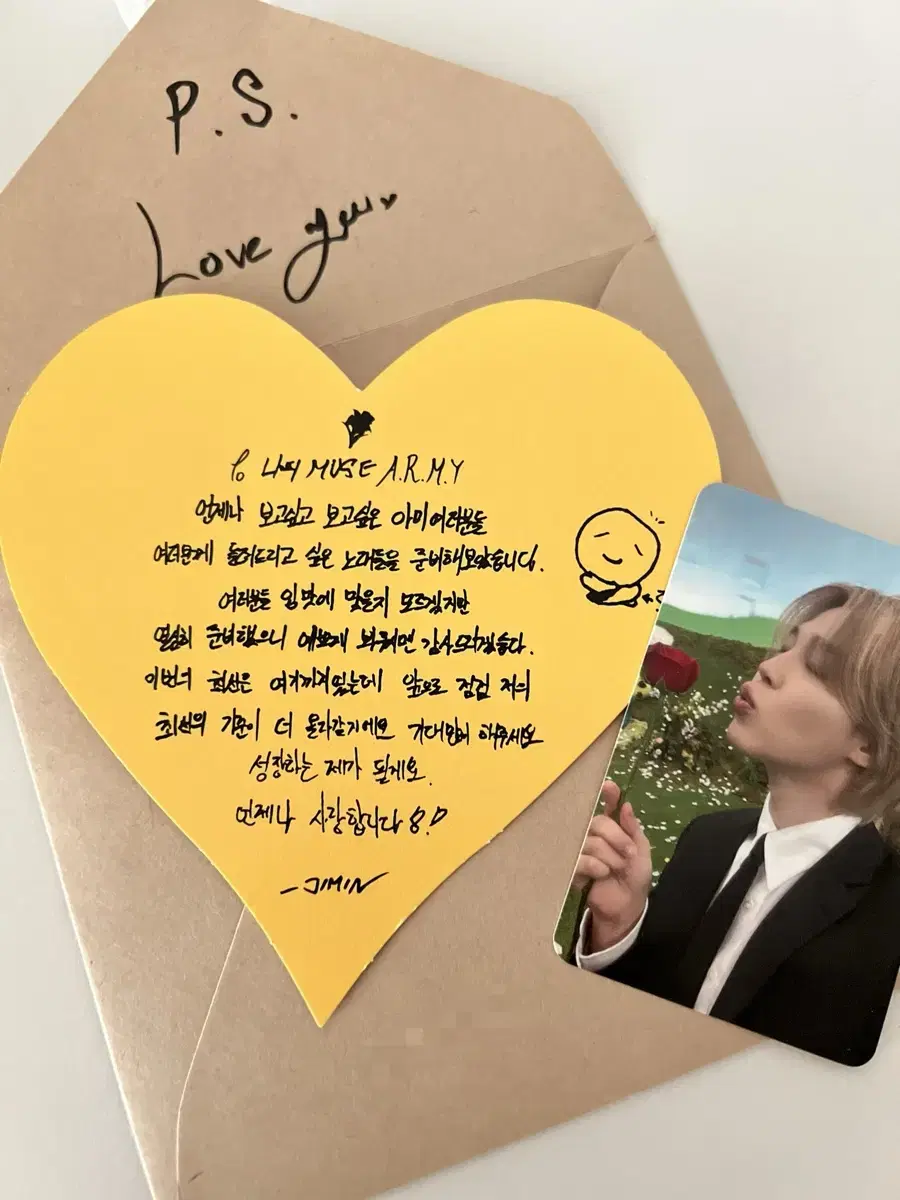 P.S.
Love you
To 나의 MUSE A.R.M.Y
언제나 보고싶고 보고싶은 아미여러분들
여러분께 들려드리고 싶은 노래들을 준비해보았습니다.
여러분들 입맛에 맞을지 모르겠지만
열심히 준비했으니 예쁘게 봐주시면 감사드리겠습니다.
이번의 최선은 여기까지였는데 앞으로 점점 저의
최선의 기준이 더 올라갈거예요 기대많이 해주세요
성장하는 제가 될게요.
언제나 사랑합니다
-JIMIN